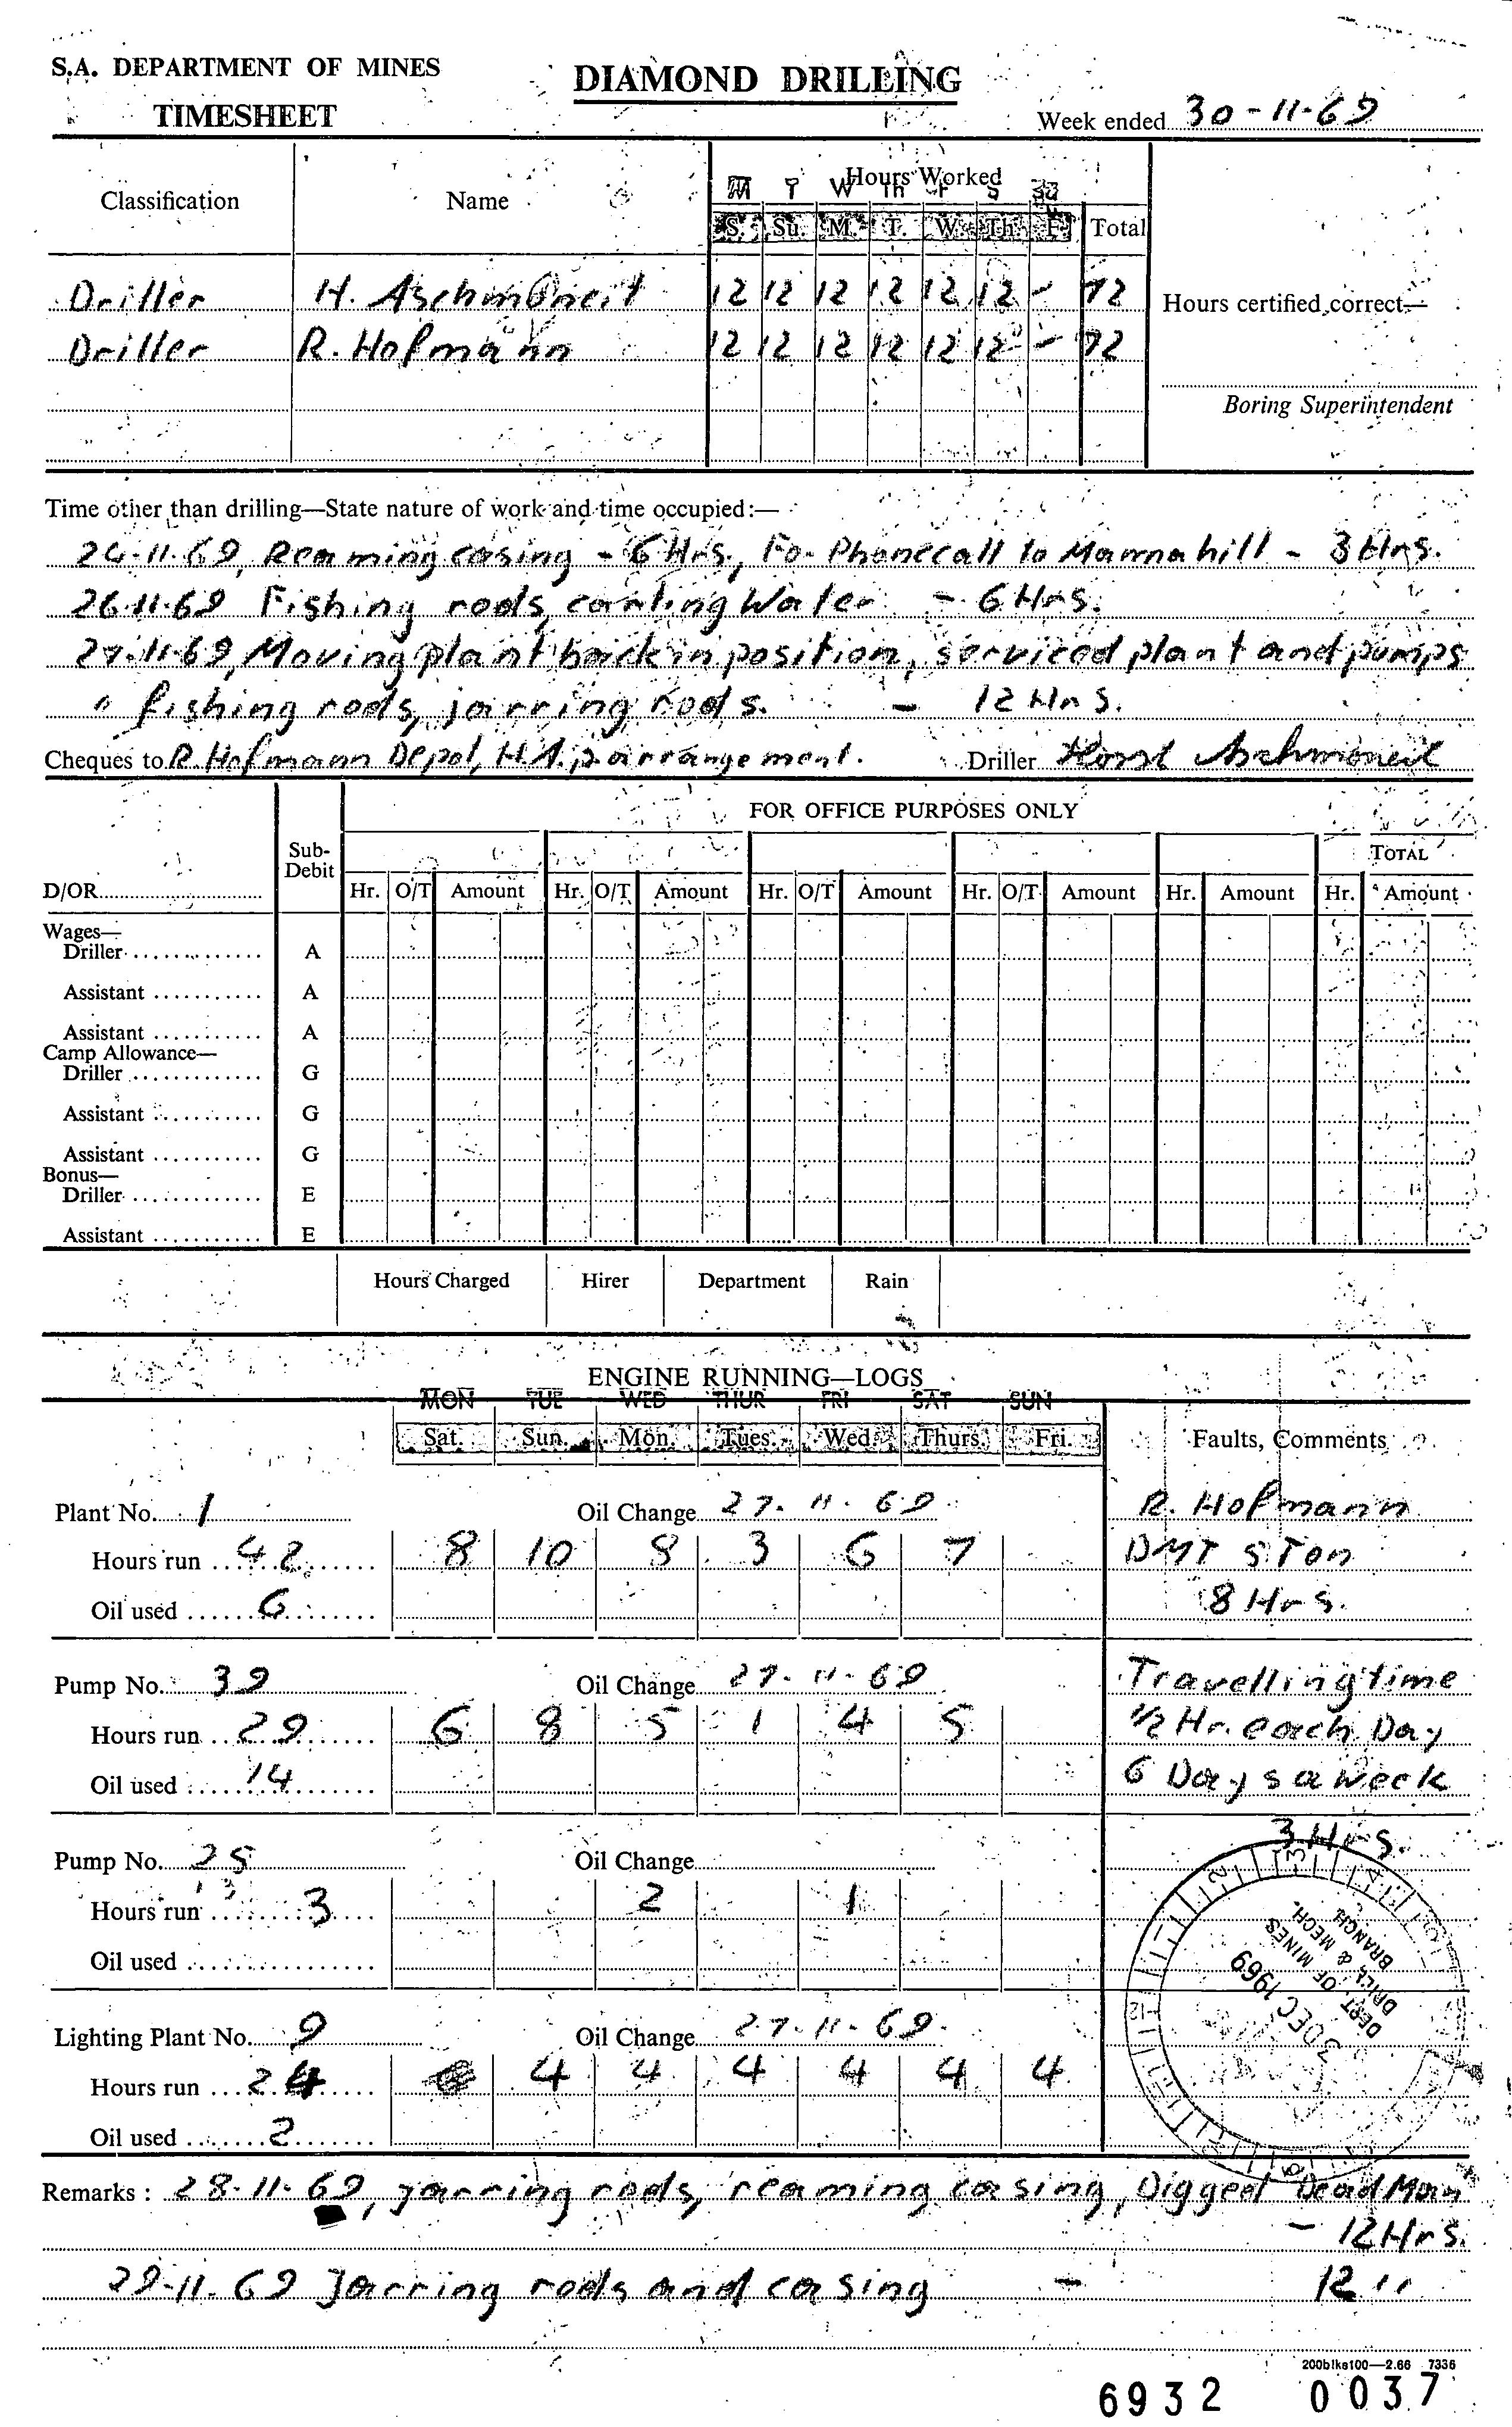 S.A. DEPARTMENT OF MINES
TIMESHEET
DIAMOND DRILLING
Week ended 30-11-69
Classification Name Hours Worked
M T W Th F S Su
S. Su. M. T. W. Th. F. Total
Driller H. Aschmoneit 12 12 12 12 12 12 – 72
Driller R. Hofmann 12 12 12 12 12 12 – 72
Hours certified correct—
Boring Superintendent
Time other than drilling—State nature of work and time occupied:—
24-11-69, Reaming casing – 6 Hrs, Fo- Phonecall to Mannahill – 3 Hrs.
26-11-69 Fishing rods, carting Water – 6 Hrs.
27-11-69, Moving plant back in position, serviced plant and pumps
" fishing rods, jarring rods. – 12 Hrs.
Cheques to R. Hofmann Depot, H.A. p. arrangement. Driller Horst Aschmoneit
FOR OFFICE PURPOSES ONLY
Sub-Debit TOTAL
D/OR Hr. O/T Amount Hr. O/T Amount Hr. O/T Amount Hr. O/T Amount Hr. Amount Hr. Amount
Wages—
Driller A
Assistant A
Assistant A
Camp Allowance—
Driller G
Assistant G
Assistant G
Bonus—
Driller E
Assistant E
Hours Charged Hirer Department Rain
ENGINE RUNNING—LOGS
MON TUE WED THUR FRI SAT SUN
Sat. Sun. Mon. Tues. Wed. Thurs. Fri. Faults, Comments
Plant No. 1 Oil Change 27-11-69 R. Hofmann
Hours run 42 8 10 8 3 6 7 DMT 5 Ton
Oil used 6 8 Hrs.
Pump No. 39 Oil Change 27-11-69 Travelling time
Hours run 29 6 8 5 1 4 5 ½ Hr. each Day
Oil used 14 6 Days a week
3 Hrs.
Pump No. 25 Oil Change
Hours run 3 2 1
Oil used
DEPT. OF MINES
DRILL & MECH.
BRANCH
3 DEC 1969
Lighting Plant No. 9 Oil Change 27-11-69
Hours run 24 4 4 4 4 4 4
Oil used 2
Remarks : 28-11-69, jarring rods, reaming casing, Digged Dead Man
– 12 Hrs.
29-11-69 Jarring rods and casing – 12 "
200blks100—2.66 7336
6932 0037